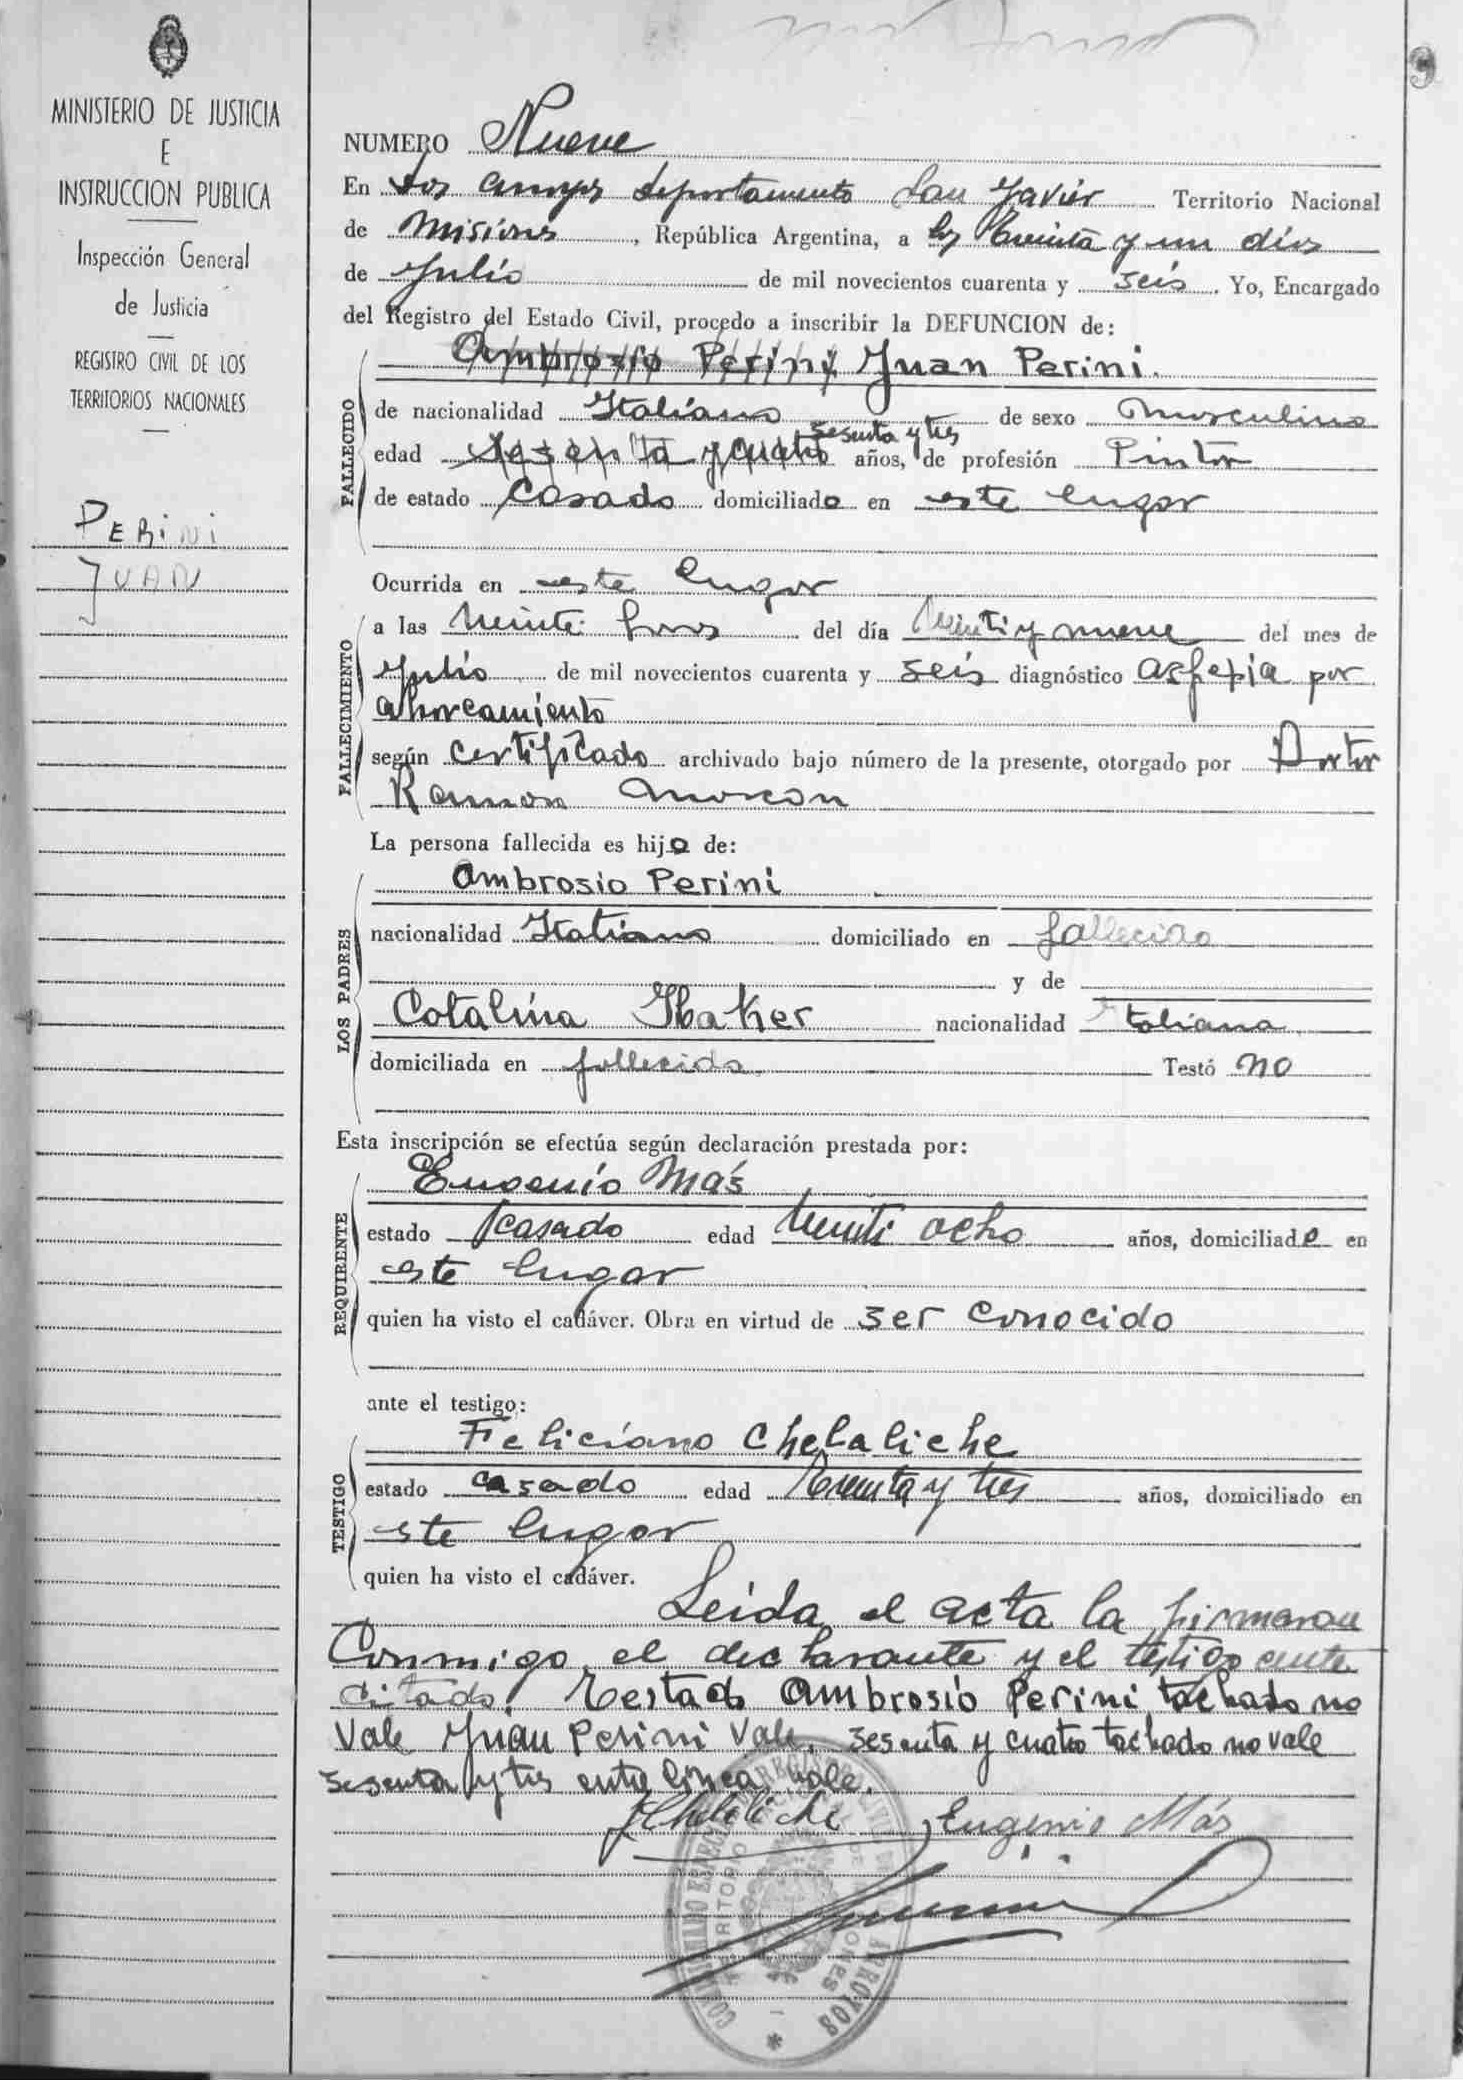 9
MINISTERIO DE JUSTICIA
E
INSTRUCCION PUBLICA
Inspección General
de Justicia
REGISTRO CIVIL DE LOS
TERRITORIOS NACIONALES
PERINI
JUAN
NUMERO Nueve
En departamento San Javier Territorio Nacional
de Misiones, República Argentina, a los treinta y un días
de Julio de mil novecientos cuarenta y seis. Yo, Encargado
del Registro del Estado Civil, procedo a inscribir la DEFUNCION de:
Ambrosio Perini Juan Perini.
FALLECIDO
de nacionalidad Italiano de sexo Masculino
sesenta y tres
edad sesenta y cuatro años, de profesión Pintor
de estado Casado domiciliado en este lugar
Ocurrida en este lugar
FALLECIMIENTO
a las Veinte horas del día Veinti y nueve del mes de
Julio de mil novecientos cuarenta y seis diagnóstico Asfepia por
ahorcamiento
según certificado archivado bajo número de la presente, otorgado por Doctor
Ramon
La persona fallecida es hijo de:
LOS PADRES
Ambrosio Perini
nacionalidad Italiano domiciliado en fallecido
y de
Catalina nacionalidad Italiana
domiciliada en fallecida Testó no
Esta inscripción se efectúa según declaración prestada por:
REQUIRENTE
Eugenio Más
estado casado edad Veinti ocho años, domiciliado en
este lugar
quien ha visto el cadáver. Obra en virtud de ser conocido
ante el testigo:
TESTIGO
Feliciano Chelaliche
estado casado edad Treinta y tres años, domiciliado en
este lugar
quien ha visto el cadáver.
Leida el acta la firmaron
Conmigo el declarante y el testigo ante
citado. Testado Ambrosio Perini tachado no
Vale Juan Perini Vale, sesenta y cuatro tachado no vale
sesenta y tres entre linea vale.
FChelaliche Eugenio Más